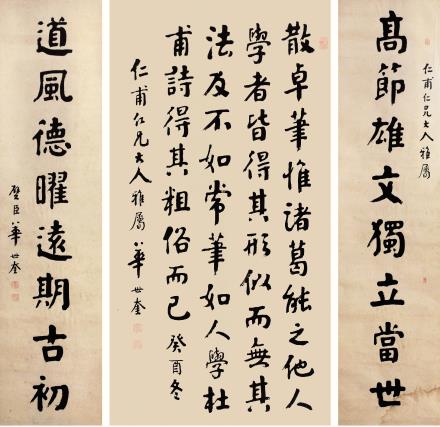 仁甫仁兄大人雅屬
髙節雄文獨立當世
散卓筆惟諸葛能之他人
學者皆得其形似而無其
法反不如常筆如人學杜
甫詩得其粗俗而已 癸酉冬
仁甫仁兄大人雅屬 華世奎
道風德曜遠期古初
璧臣華世奎